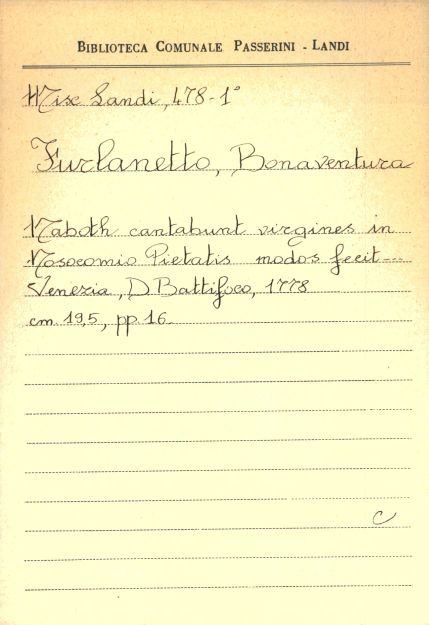 BIBLIOTECA COMUNALE PASSERINI - LANDI
Misc Landi, 478-1°
Furlanetto, Bonaventura
Naboth cantabunt virgines in
Nosocomio Pietatis modos fecit---
Venezia, D. Battifoco, 1778
cm 19,5, pp 16.
C